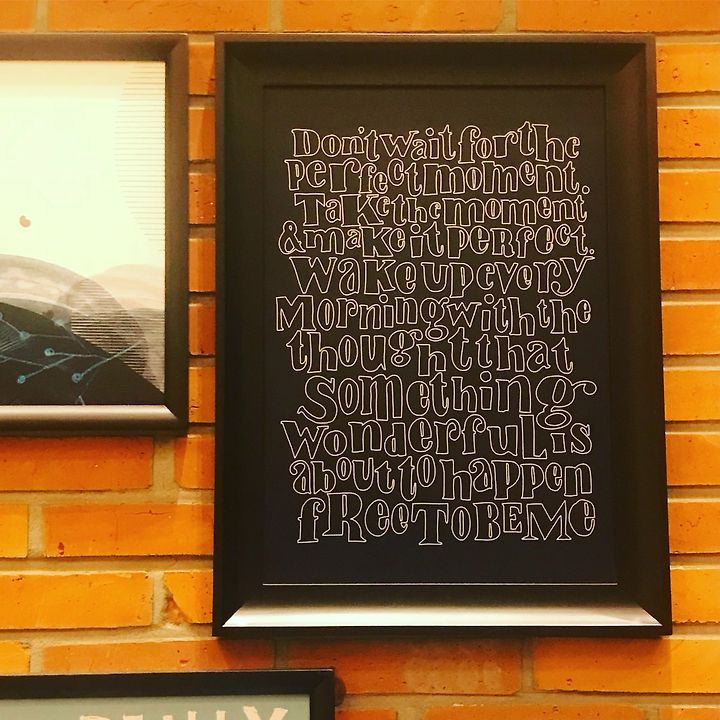 Don't wait for the
perfect moment.
Take the moment
& make it perfect.
Wake up every
Morning with the
thought that
something
wonderful is
about to happen
fRee TO BE ME